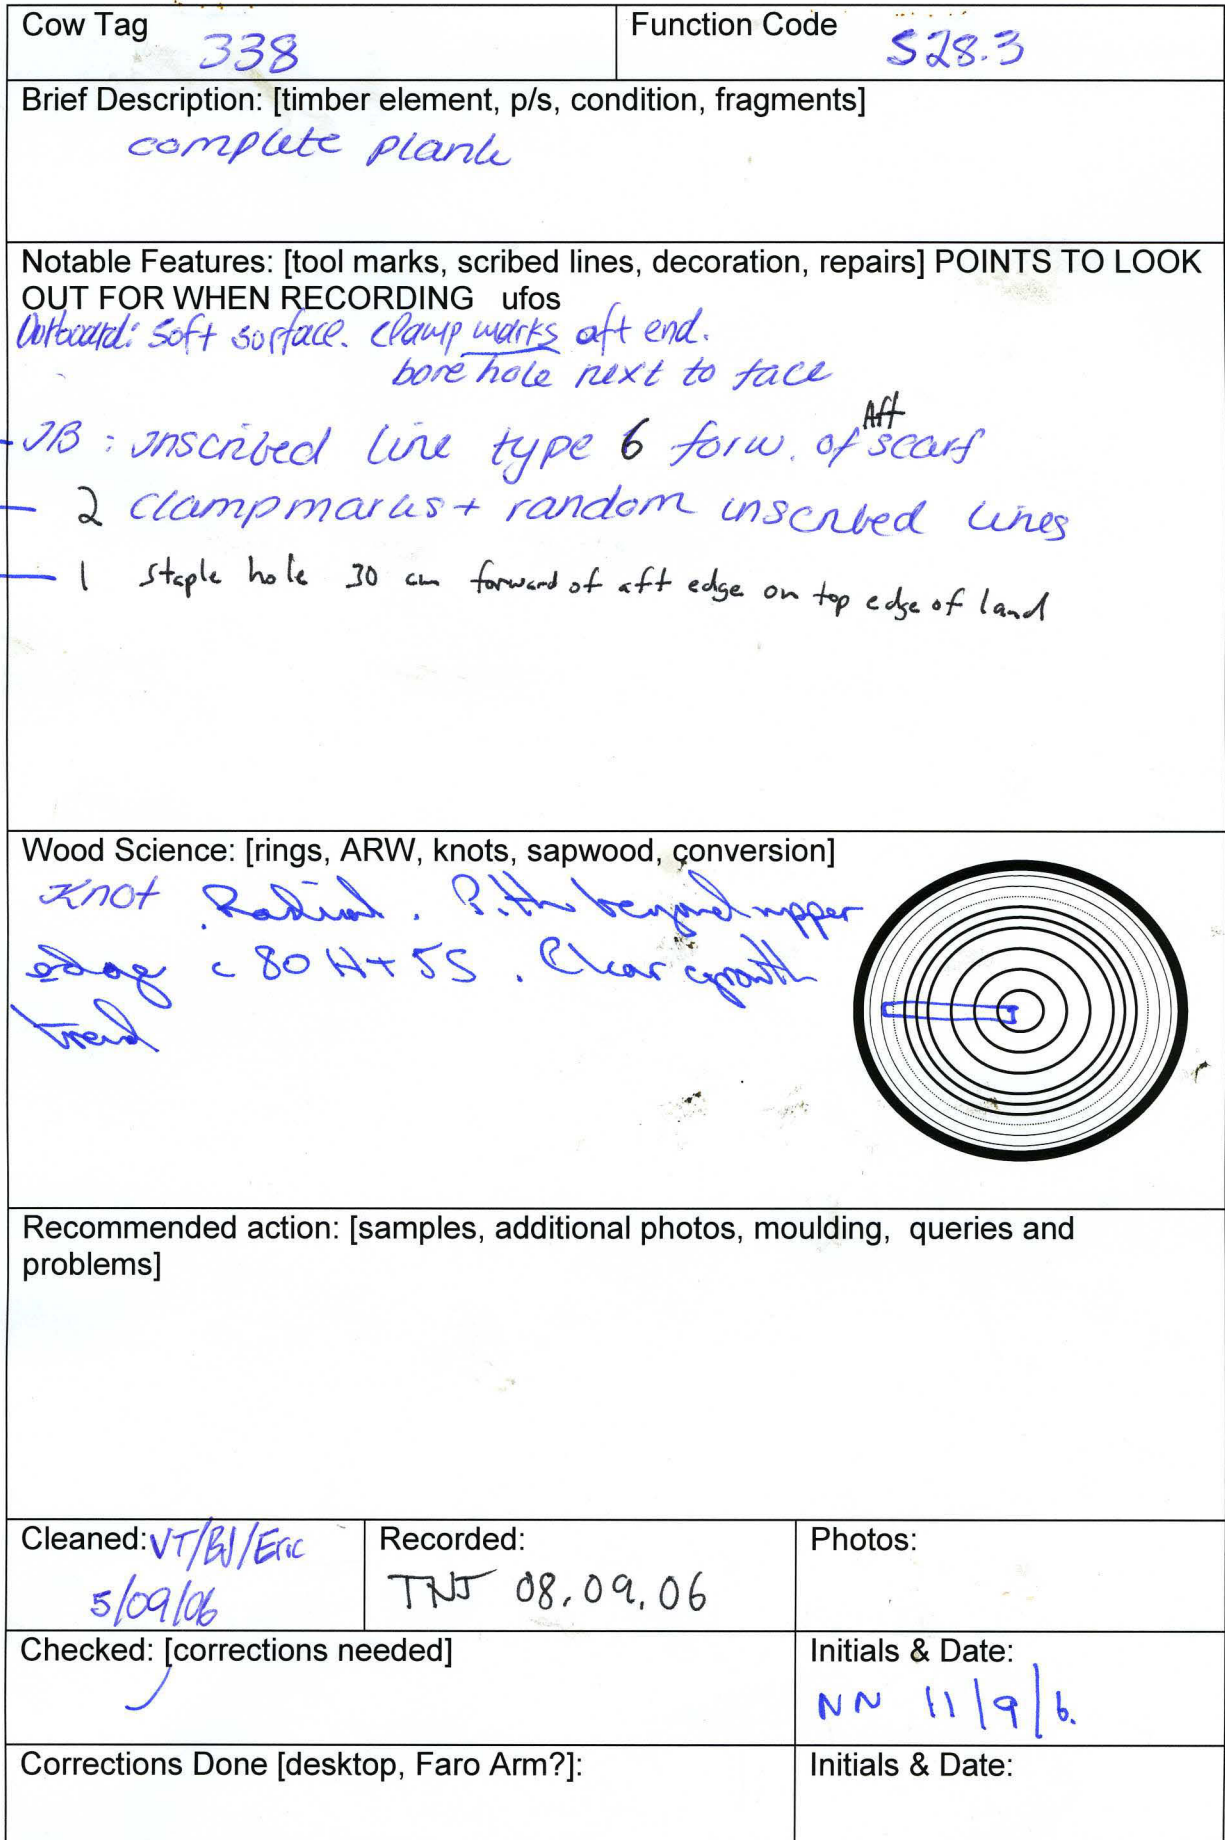 Cow Tag 338
Function Code S28.3
Brief Description: [timber element, p/s, condition, fragments]
complete plank
Notable Features: [tool marks, scribed lines, decoration, repairs] POINTS TO LOOK
OUT FOR WHEN RECORDING ufos
Outboard: Soft surface. clamp marks aft end.
bore hole next to face
Aft
- IB : inscribed line type 6 forw. of scarf
- 2 clampmarks + random inscribed lines
- 1 staple hole 30 cm forward of aft edge on top edge of land
Wood Science: [rings, ARW, knots, sapwood, conversion]
Knot. Radial. Pith beyond upper
edge c 80 H + 5S. Clear growth
trend
Recommended action: [samples, additional photos, moulding, queries and
problems]
Cleaned: VT/BJ/Eric
5/09/06
Recorded:
TNJ 08.09.06
Photos:
Checked: [corrections needed]
Initials & Date:
NN 11/9/6.
Corrections Done [desktop, Faro Arm?]:
Initials & Date: